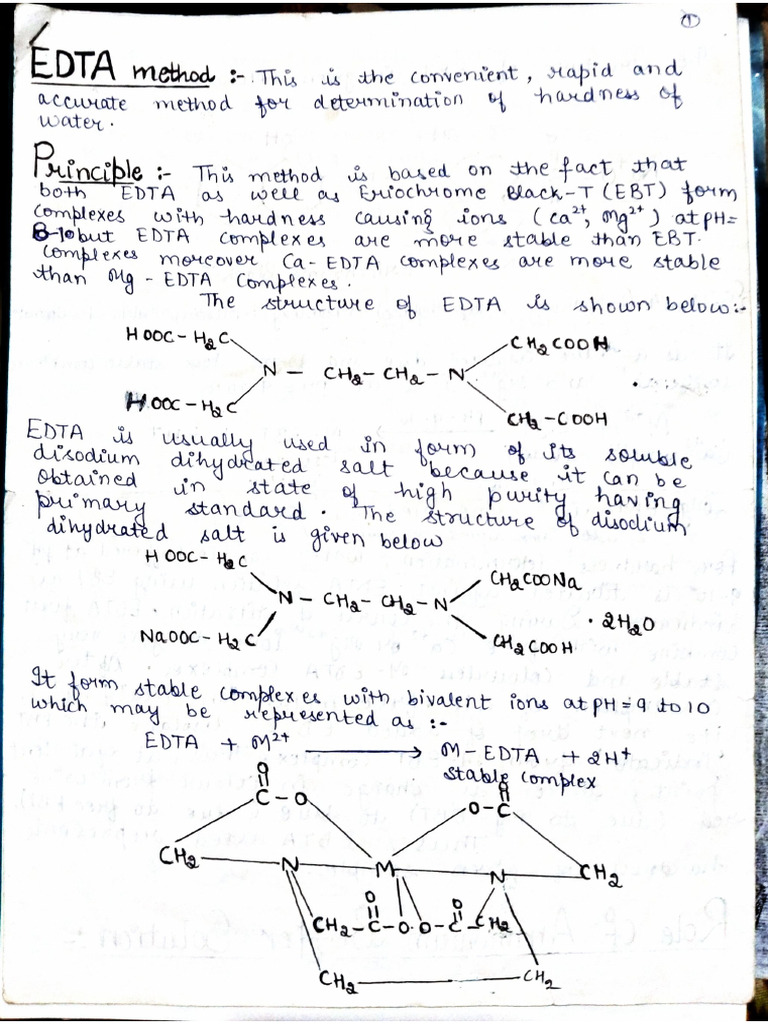 1
EDTA method :- This is the convenient, rapid and
accurate method for determination of hardness of
water.
Principle :- This method is based on the fact that
both EDTA as well as Eriochrome Black-T (EBT) form
complexes with hardness causing ions (Ca²⁺, Mg²⁺) at pH=
8-10 but EDTA complexes are more stable than EBT.
complexes moreover Ca-EDTA complexes are more stable
than Mg-EDTA Complexes.
The structure of EDTA is shown below:-
HOOC-H₂C CH₂COOH
N - CH₂-CH₂-N
HOOC-H₂C CH₂-COOH
EDTA is usually used in form of its soluble
disodium dihydrated salt because it can be
obtained in state of high purity having
primary standard. The structure of disodium
dihydrated salt is given below
HOOC-H₂C CH₂COONa
N-CH₂-CH₂-N · 2H₂O
NaOOC-H₂C CH₂COOH
It form stable complexes with bivalent ions at pH=9 to 10
which may be represented as :-
EDTA + M²⁺ → M-EDTA + 2H⁺
stable complex
O O
C-O O-C
CH₂ N M N CH₂
O O
CH₂-C-O O-C-CH₂
CH₂ CH₂